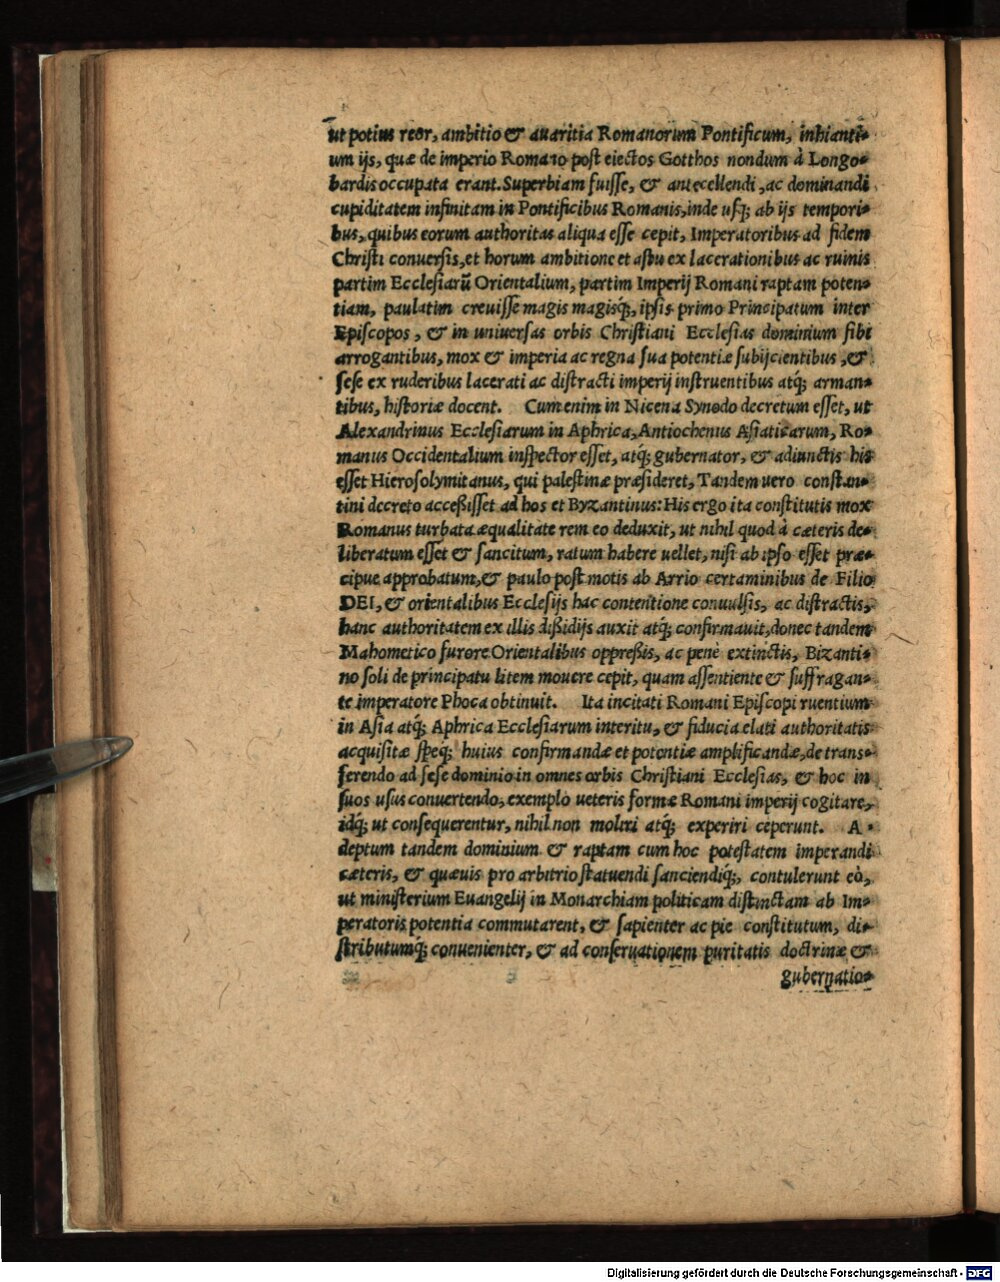 ut potius reor, ambitio & auaritia Romanorum Pontificum, inhianti-
um ijs, quæ de imperio Romano post eiectos Gotthos nondum à Longo-
bardis occupata erant. Superbiam fuisse, & antecellendi, ac dominandi
cupiditatem infinitam in Pontificibus Romanis, inde usq; ab ijs tempori-
bus, quibus eorum authoritas aliqua esse cepit, Imperatoribus ad fidem
Christi conuersis, et horum ambitione et astu ex lacerationibus ac ruinis
partim Ecclesiarũ Orientalium, partim Imperij Romani raptam poten-
tiam, paulatim creuisse magis magisq́;, ipsis primo Principatum inter
Episcopos, & in uniuersas orbis Christiani Ecclesias dominium sibi
arrogantibus, mox & imperia ac regna sua potentiæ subijcientibus, &
sese ex ruderibus lacerati ac distracti imperij instruentibus atq́; arman-
tibus, historiæ docent. Cum enim in Nicena Synodo decretum esset, ut
Alexandrinus Ecclesiarum in Aphrica, Antiochenus Asiaticarum, Ro-
manus Occidentalium inspector esset, atq́; gubernator, & adiunctis his
esset Hierosolymitanus, qui palestinæ præsideret, Tandem uero constan-
tini decreto accessisset ad hos et Byzantinus: His ergo ita constitutis mox
Romanus turbata æqualitate rem eo deduxit, ut nihil quod à cæteris de-
liberatum esset & sancitum, ratum habere uellet, nisi ab ipso esset præ-
cipue approbatum, & paulo post motis ab Arrio certaminibus de Filio
DEI, & orientalibus Ecclesijs hac contentione conuulsis, ac distractis,
hanc authoritatem ex illis dissidijs auxit atq́; confirmauit, donec tandem
Mahometico furore Orientalibus oppressis, ac penè extinctis, Bizanti-
no soli de principatu litem mouere cepit, quam assentiente & suffragan-
te imperatore Phoca obtinuit. Ita incitati Romani Episcopi ruentium
in Asia atq́; Aphrica Ecclesiarum interitu, & fiducia elati authoritatis
acquisitæ speq́; huius confirmandæ et potentiæ amplificandæ, de trans-
ferendo ad sese dominio in omnes orbis Christiani Ecclesias, & hoc in
suos usus conuertendo, exemplo ueteris formæ Romani imperij cogitare,
idq́; ut consequerentur, nihil non moliri atq́; experiri ceperunt. A-
deptum tandem dominium & raptam cum hoc potestatem imperandi
cæteris, & quæuis pro arbitrio statuendi sanciendiq́;, contulerunt eò,
ut ministerium Euangelij in Monarchiam politicam distinctam ab Im-
peratoris potentia commutarent, & sapienter ac pie constitutum, di-
stributumq́; conuenienter, & ad conseruationem puritatis doctrinæ &
gubernatio-
Digitalisierung gefördert durch die Deutsche Forschungsgemeinschaft - DFG